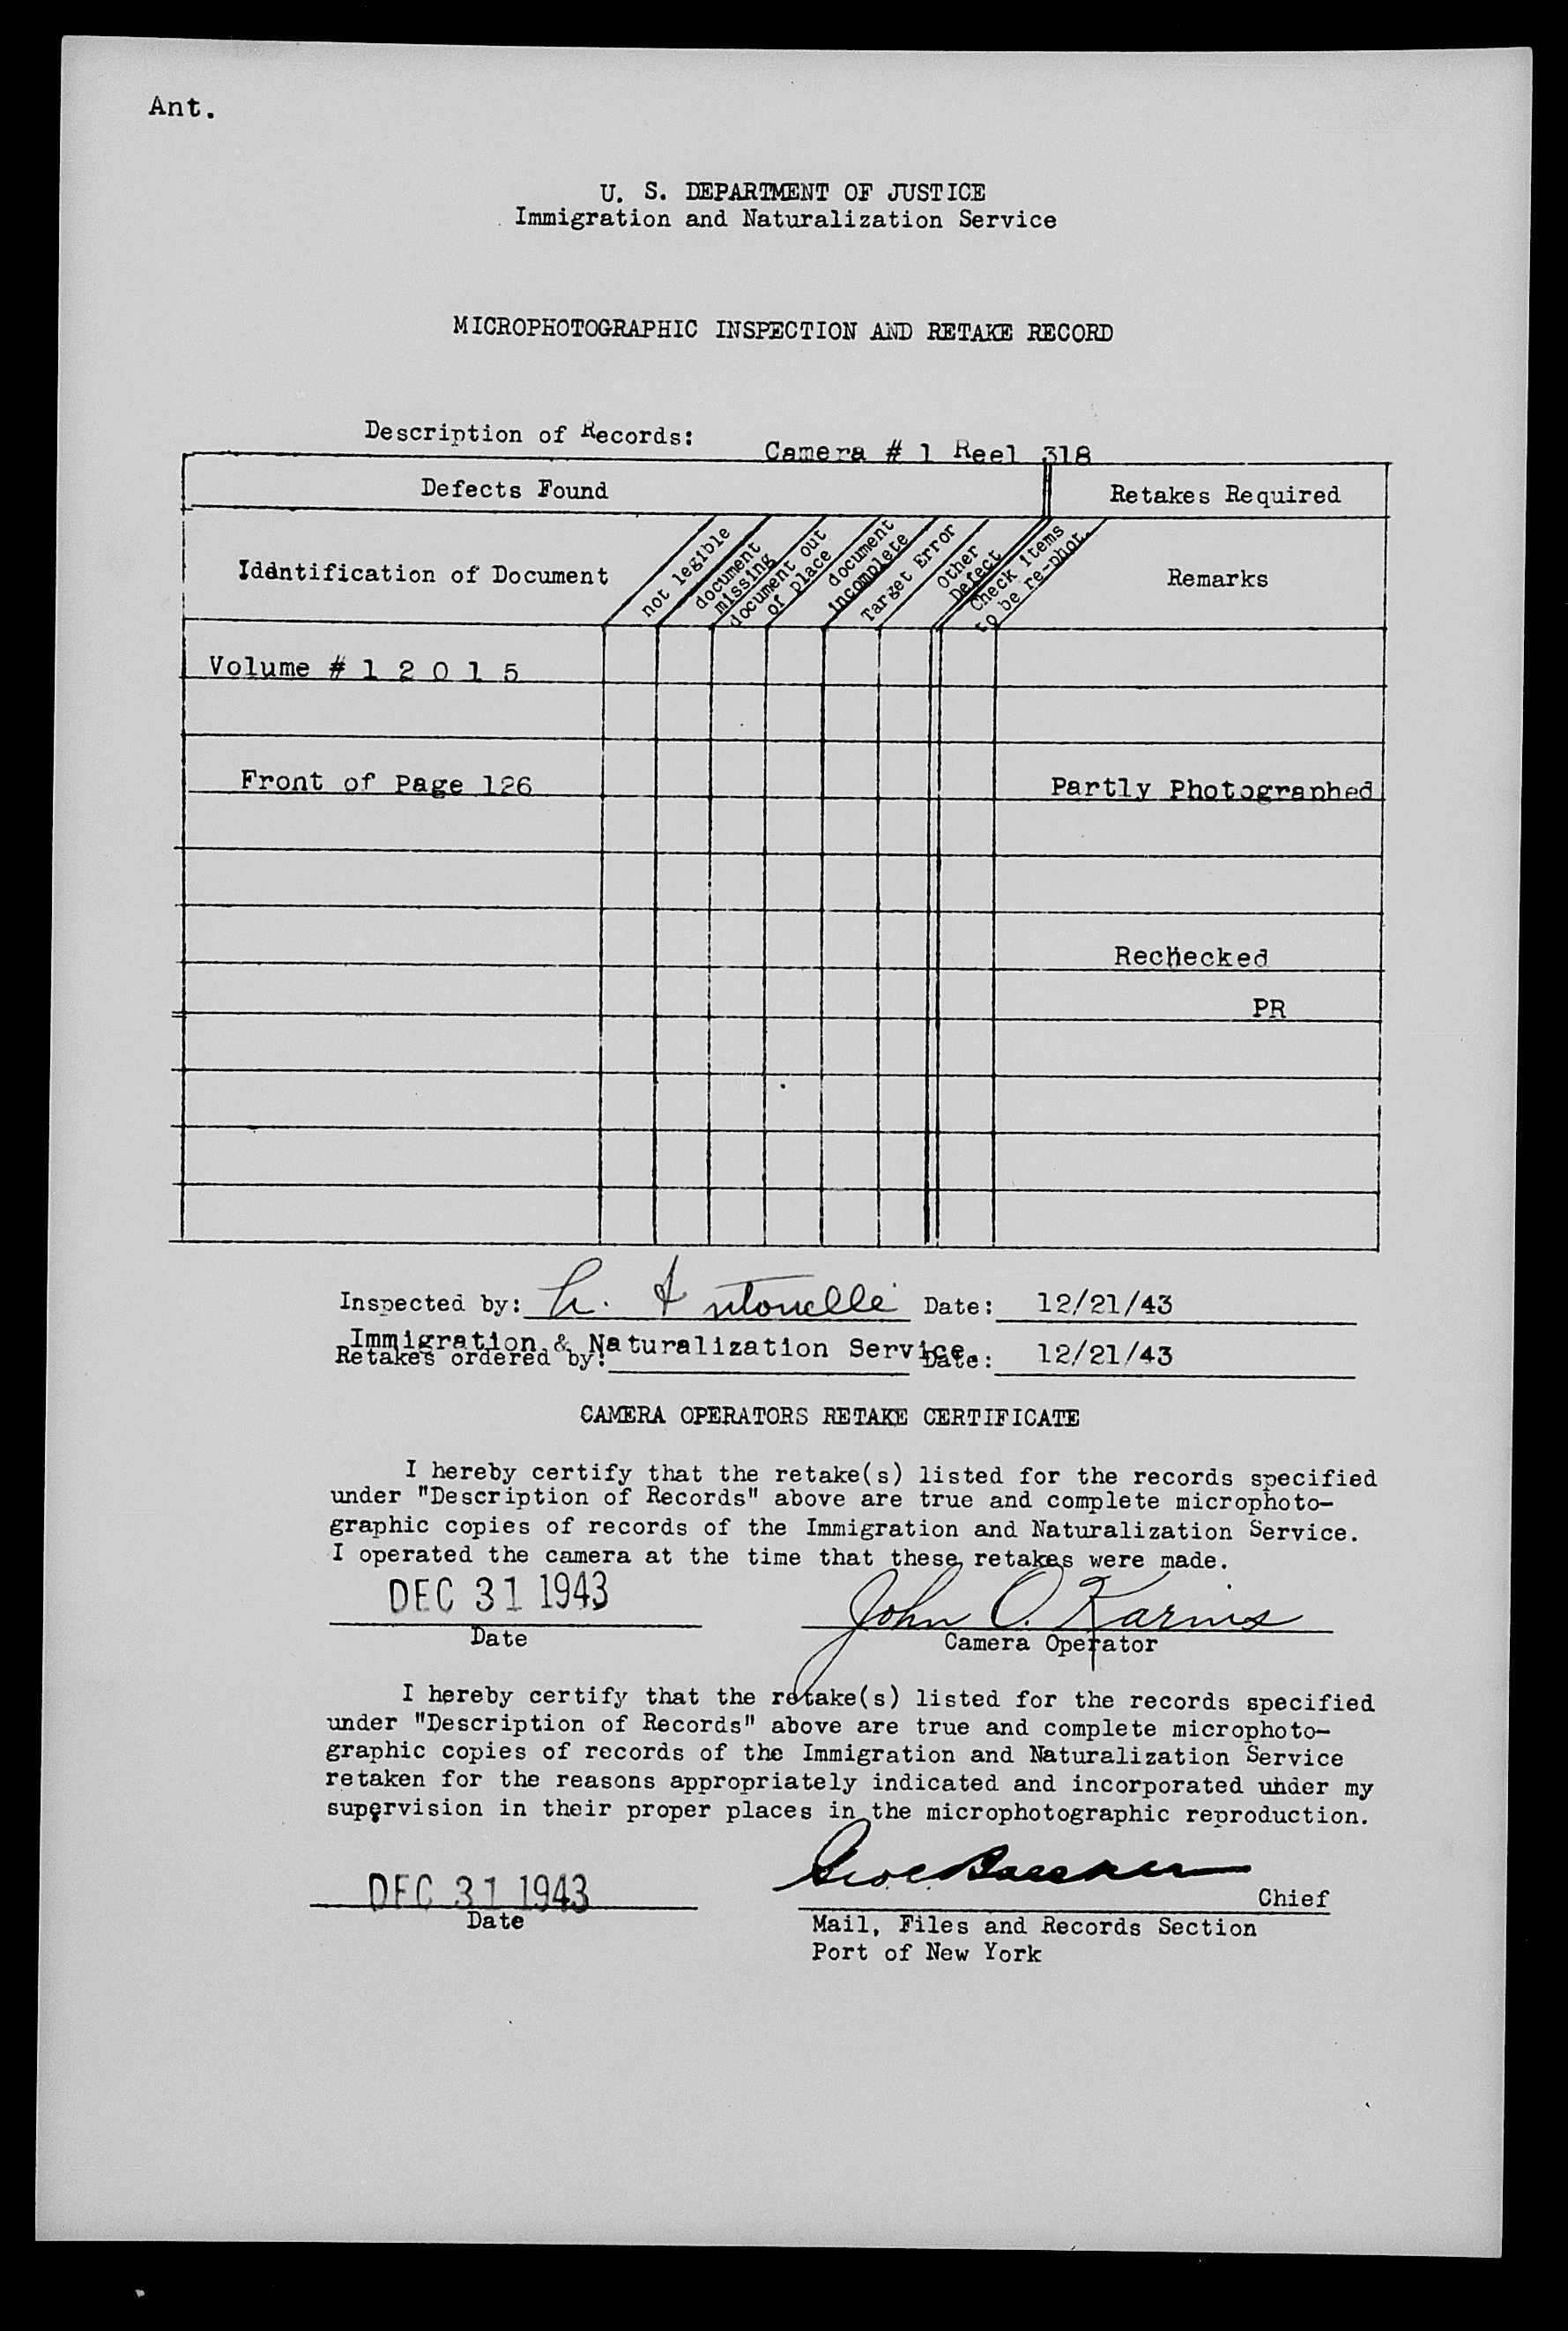 Ant.
U. S. DEPARTMENT OF JUSTICE
Immigration and Naturalization Service
MICROPHOTOGRAPHIC INSPECTION AND RETAKE RECORD
Description of Records: Camera # 1 Reel 318
Defects Found Retakes Required
Iddntification of Document
not legible
document
missing
document out
of place
document
incomplete
Target Error
Other
Defect
Check items
to be re-phot.
Remarks
Volume # 1 2 0 1 5
Front of Page 126 Partly Photographed
Rechecked
PR
Inspected by: Antonelli Date: 12/21/43
Immigration & Naturalization Service
Retakes ordered by: Date: 12/21/43
CAMERA OPERATORS RETAKE CERTIFICATE
I hereby certify that the retake(s) listed for the records specified
under "Description of Records" above are true and complete microphoto-
graphic copies of records of the Immigration and Naturalization Service.
I operated the camera at the time that these retakes were made.
DEC 31 1943 John O.
Date Camera Operator
I hereby certify that the retake(s) listed for the records specified
under "Description of Records" above are true and complete microphoto-
graphic copies of records of the Immigration and Naturalization Service
retaken for the reasons appropriately indicated and incorporated under my
supervision in their proper places in the microphotographic reproduction.
DEC 31 1943
Date
Chief
Mail, Files and Records Section
Port of New York